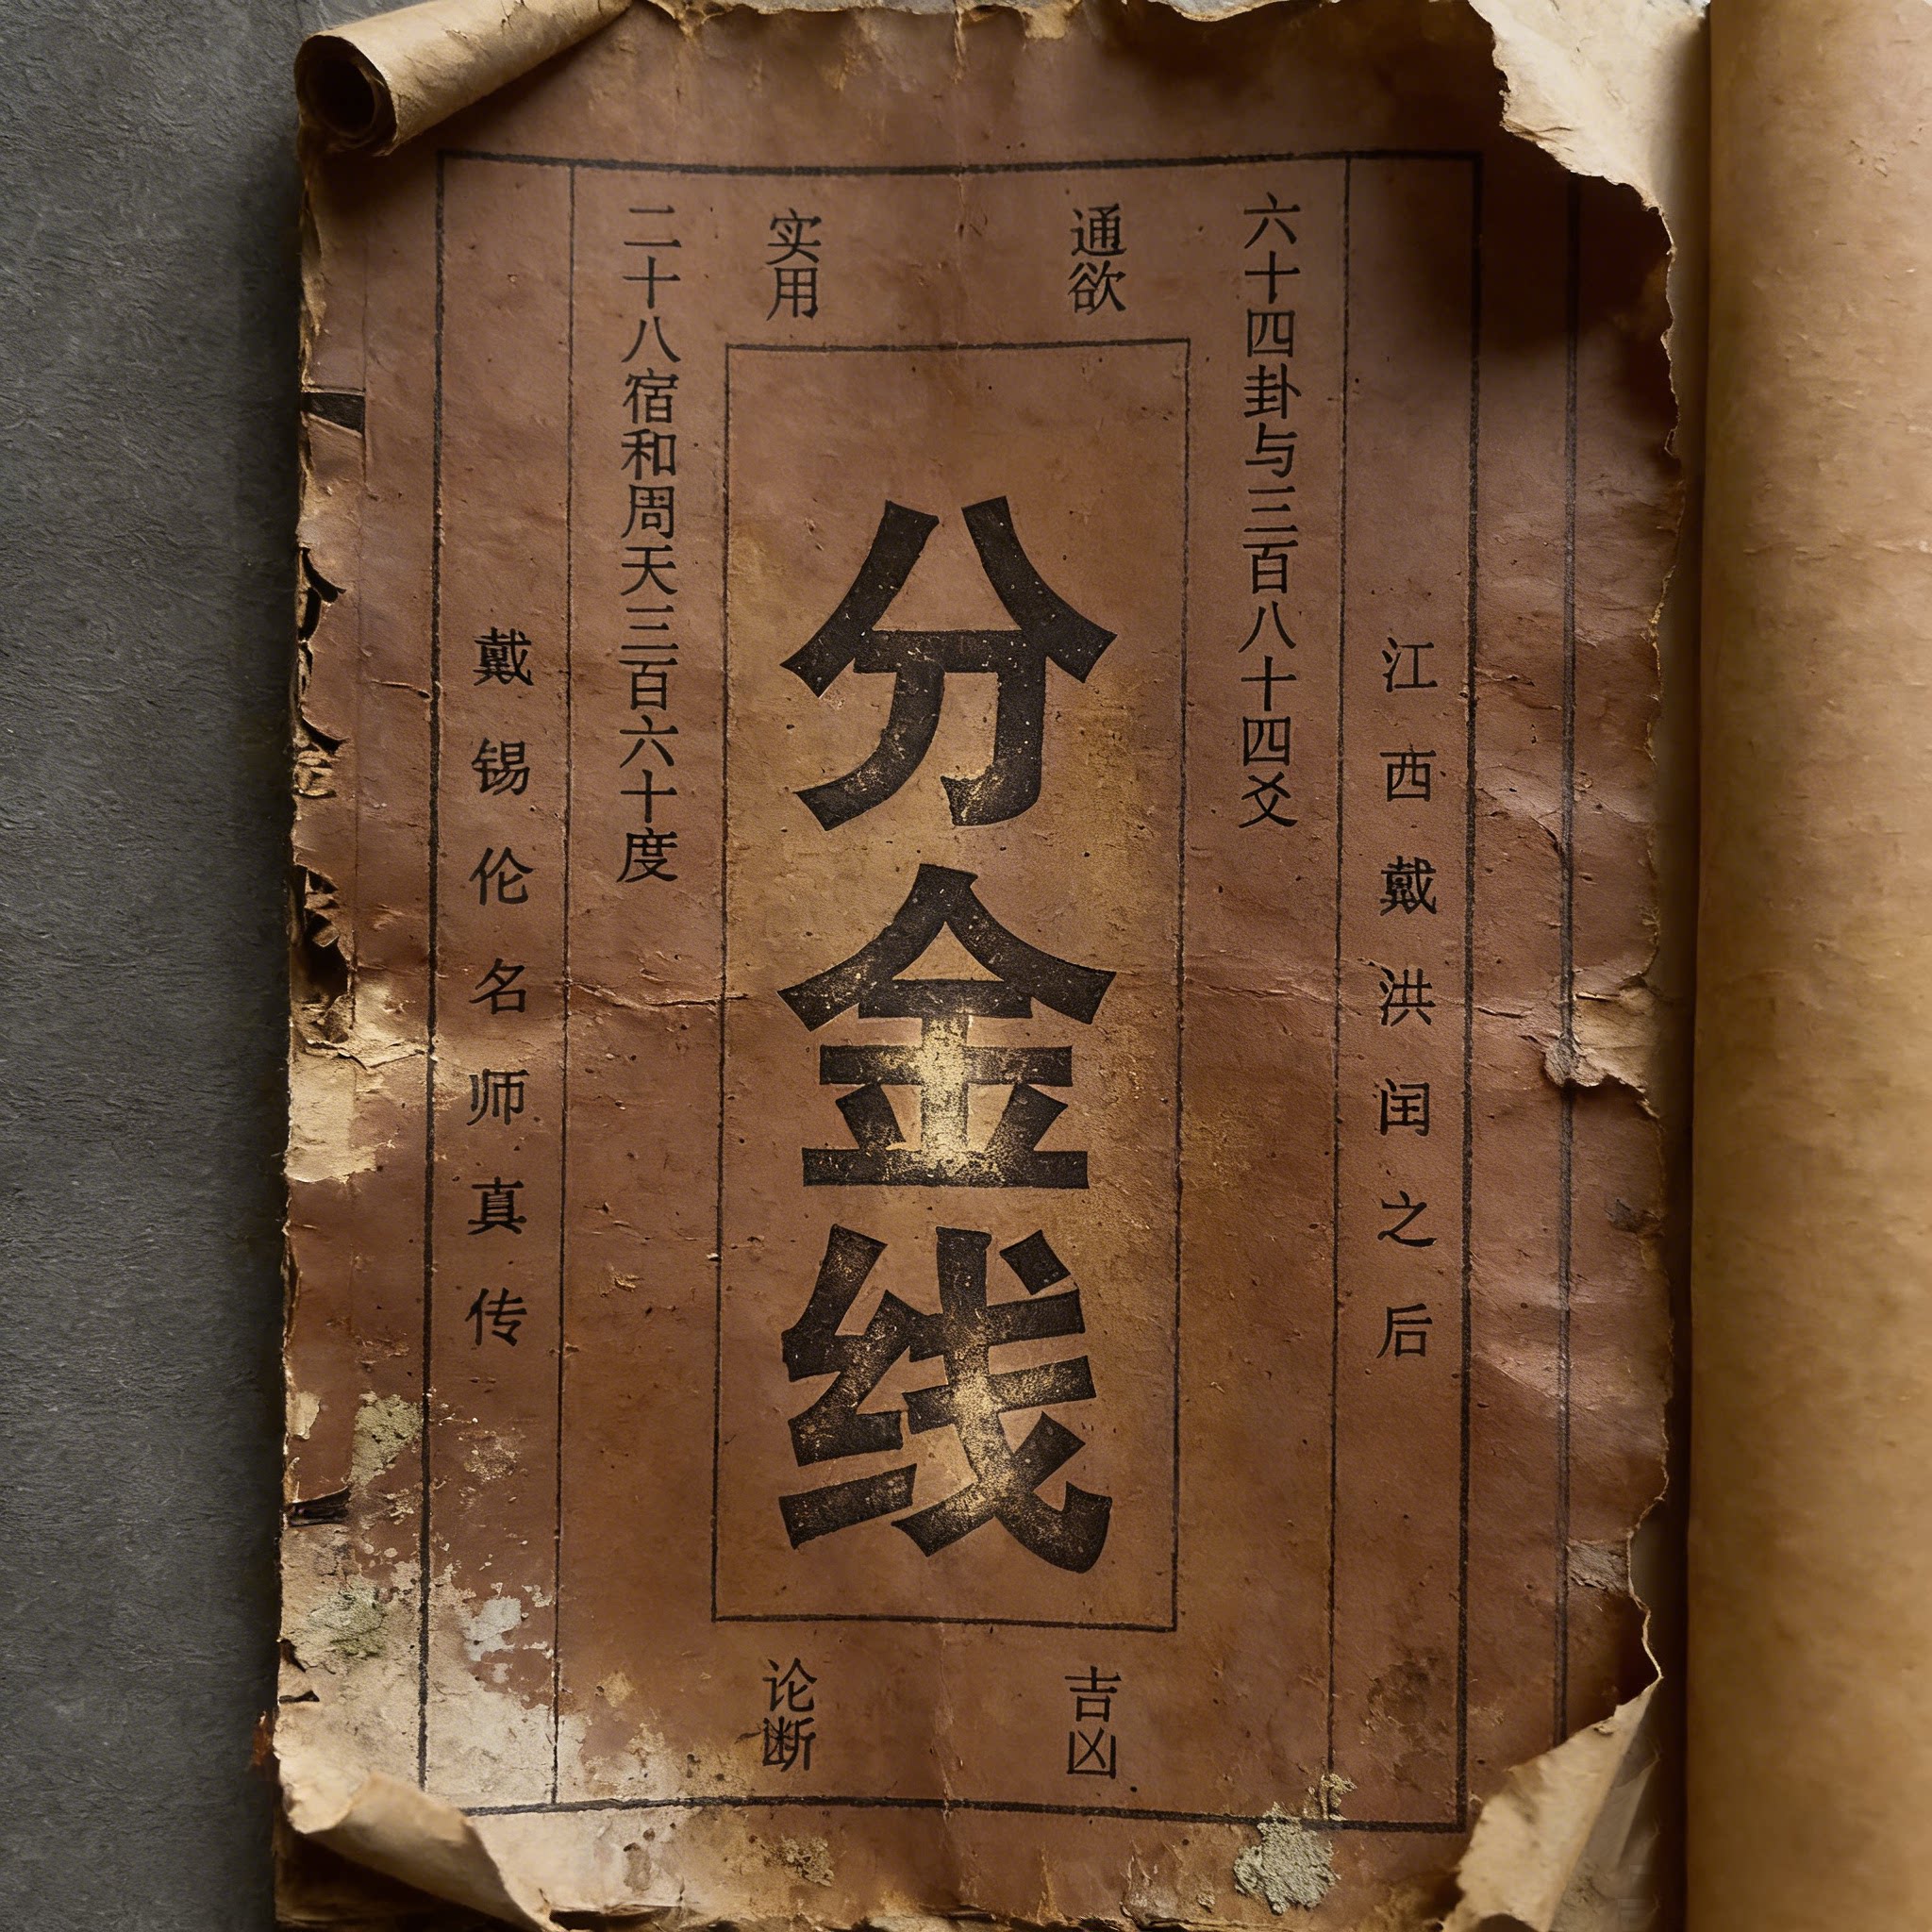 江西戴洪闰之后
六十四卦与三百八十四爻
通欲
实用
分金线
吉凶
论断
二十八宿和周天三百六十度
戴锡伦名师真传